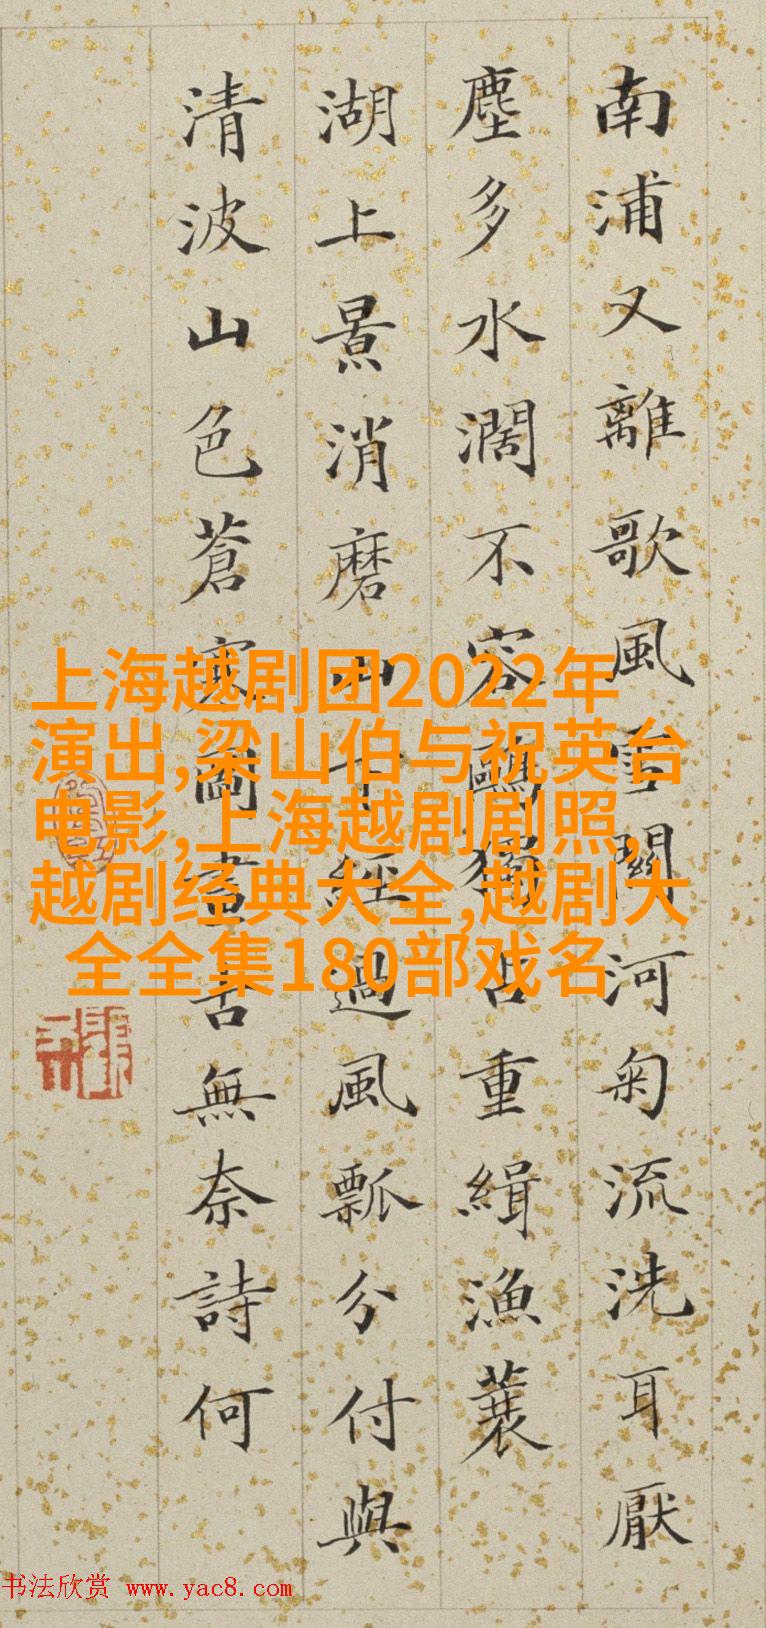 南浦又離歌風雪關河匊流洗耳厭
塵多水濶不容鷗獨占重緝漁蓑
湖上景消磨經過風瓢分付與
清波山色蒼寒圖畫無奈詩何
上海越剧团2022年
演出,梁山伯与祝英台
电影,上海越剧剧照,
越剧经典大全,越剧大
全全集180部戏名
书法欣赏 www.yac8.com